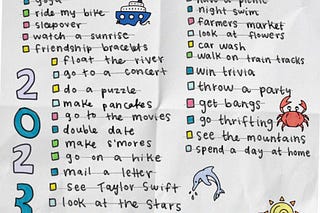 yoga
ride my bike
sleepover
watch a sunrise
friendship bracelets
float the river
go to a concert
do a puzzle
make pancakes
go to the movies
double date
make s'mores
go on a hike
mail a letter
see Taylor Swift
look at the stars
2023
have a picnic
night swim
farmers market
look at flowers
car wash
walk on train tracks
win trivia
throw a party
get bangs
go thrifting
see the mountains
spend a day at home